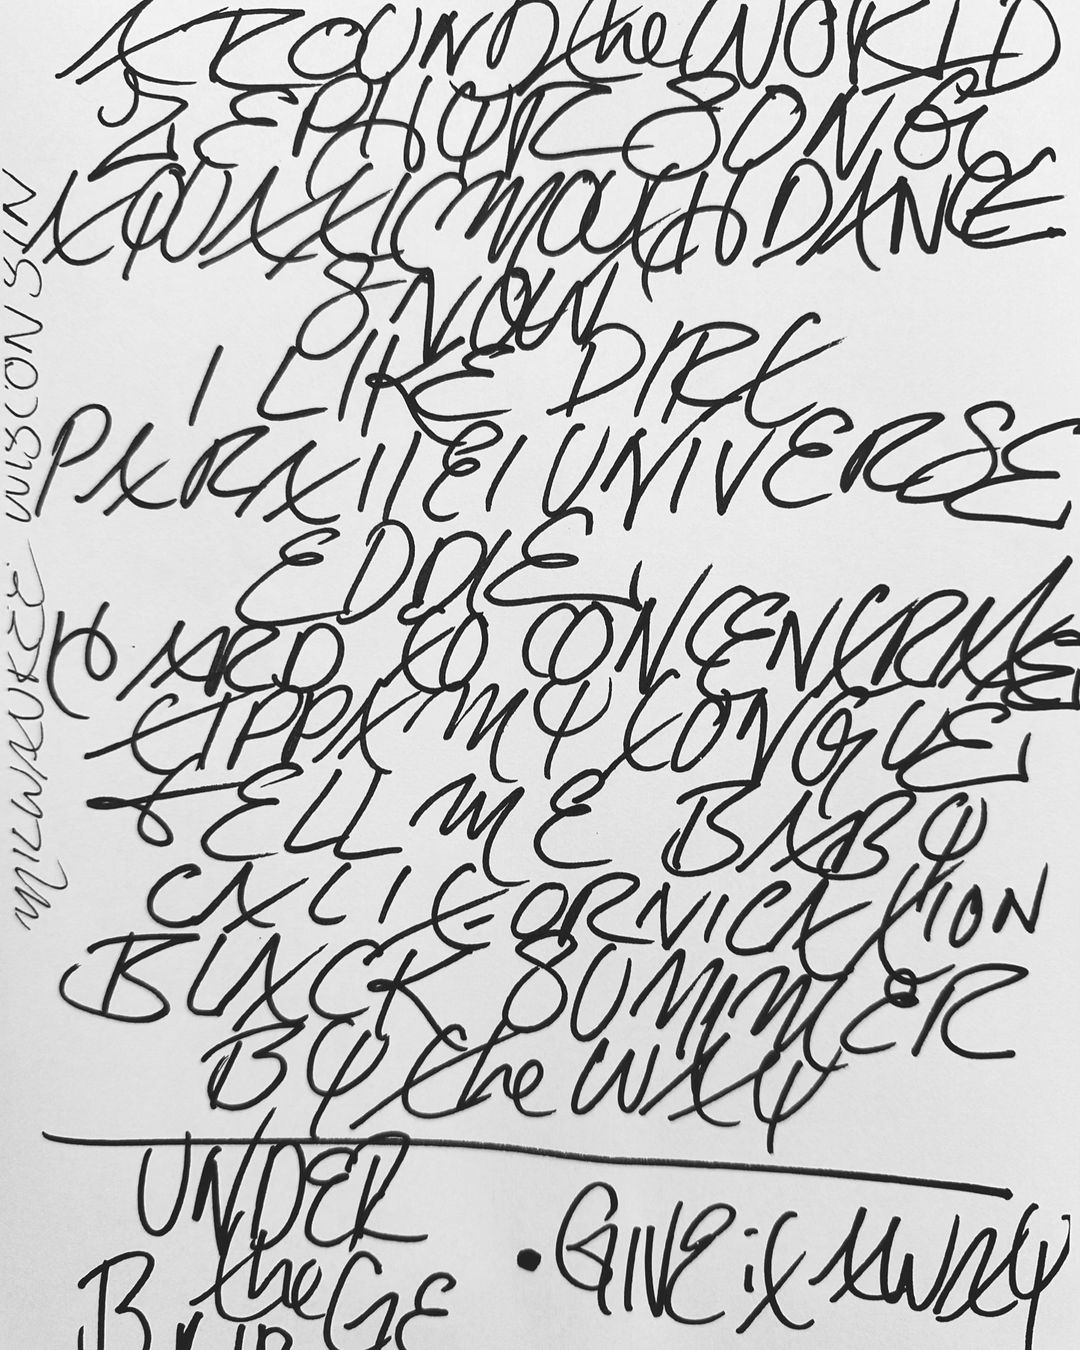 AROUND the WORLD
ZEPHYR SONG
AQUATIC MOUTH DANCE
SNOW
I LIKE DIRT
PARALLEL UNIVERSE
EDDIE
HARD TO CONCENTRATE
TIPPA MY TONGUE
TELL ME BABY
CALIFORNICATION
BLACK SUMMER
BY the WAY
UNDER
the
BRIDGE
• GIVE it AWAY
MILWAUKEE WISCONSIN